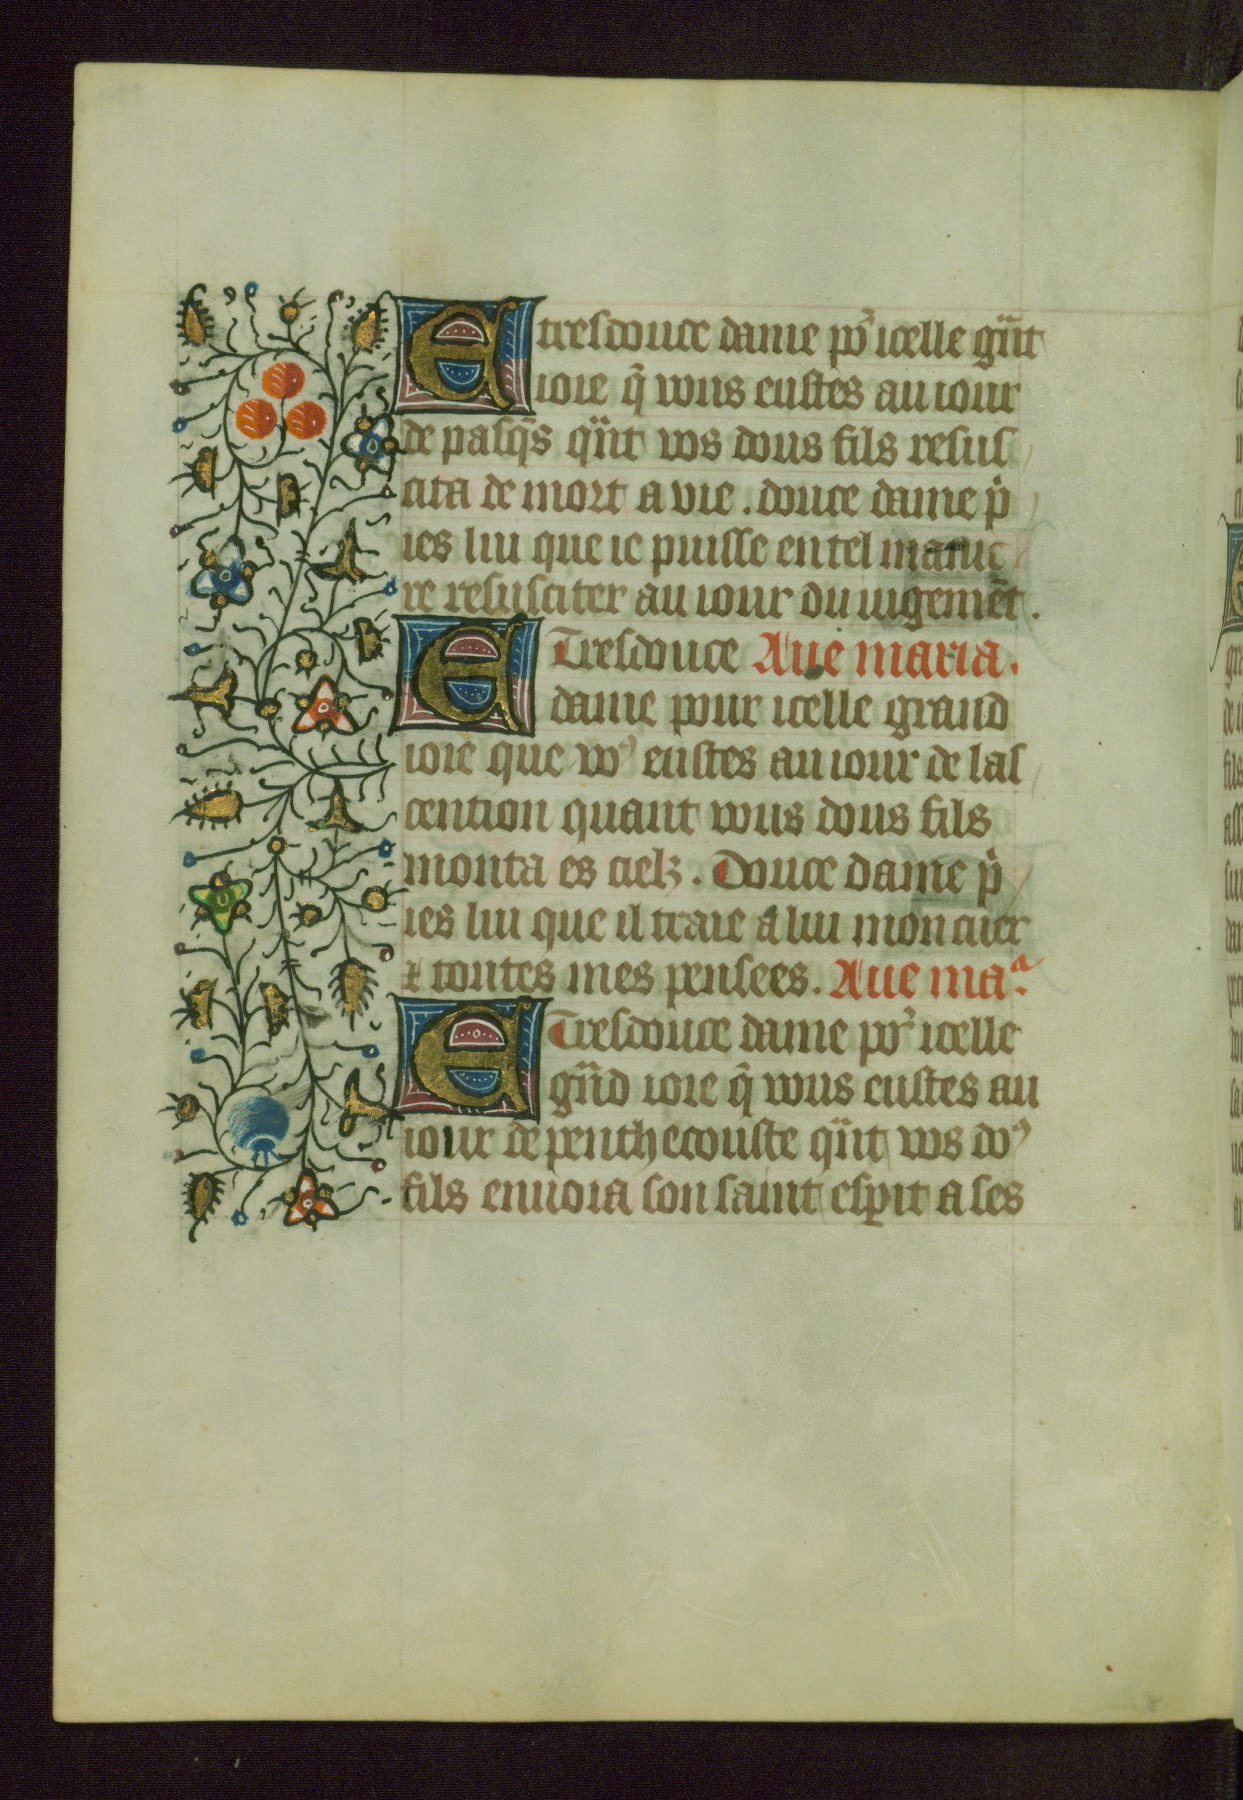 E tresdouce dame po᷑ icelle gn̄t
ioie q̄ vous eustes au iour
de pasq̄s qn̄t vos dous fils resus
cita de mort a vie . douce dame p̄
ies lui que ie puisse en tel manie
re resusciter au iour du iugemēt .
E Tresdouce Aue maria .
dame pour icelle grand
ioie que voꝰ eustes au iour de las
cention quant vous dous fils
monta es cielz . Douce dame p̄
ies lui que il traie a lui mon cuer
⁊ toutes mes pensees . Aue maᵃ .
E Tresdouce dame po᷑ icelle
gn̄d ioie q̄ vous eustes au
iour de penthecouste qn̄t vos doꝰ
fils enuoia son saint esꝑit a ses